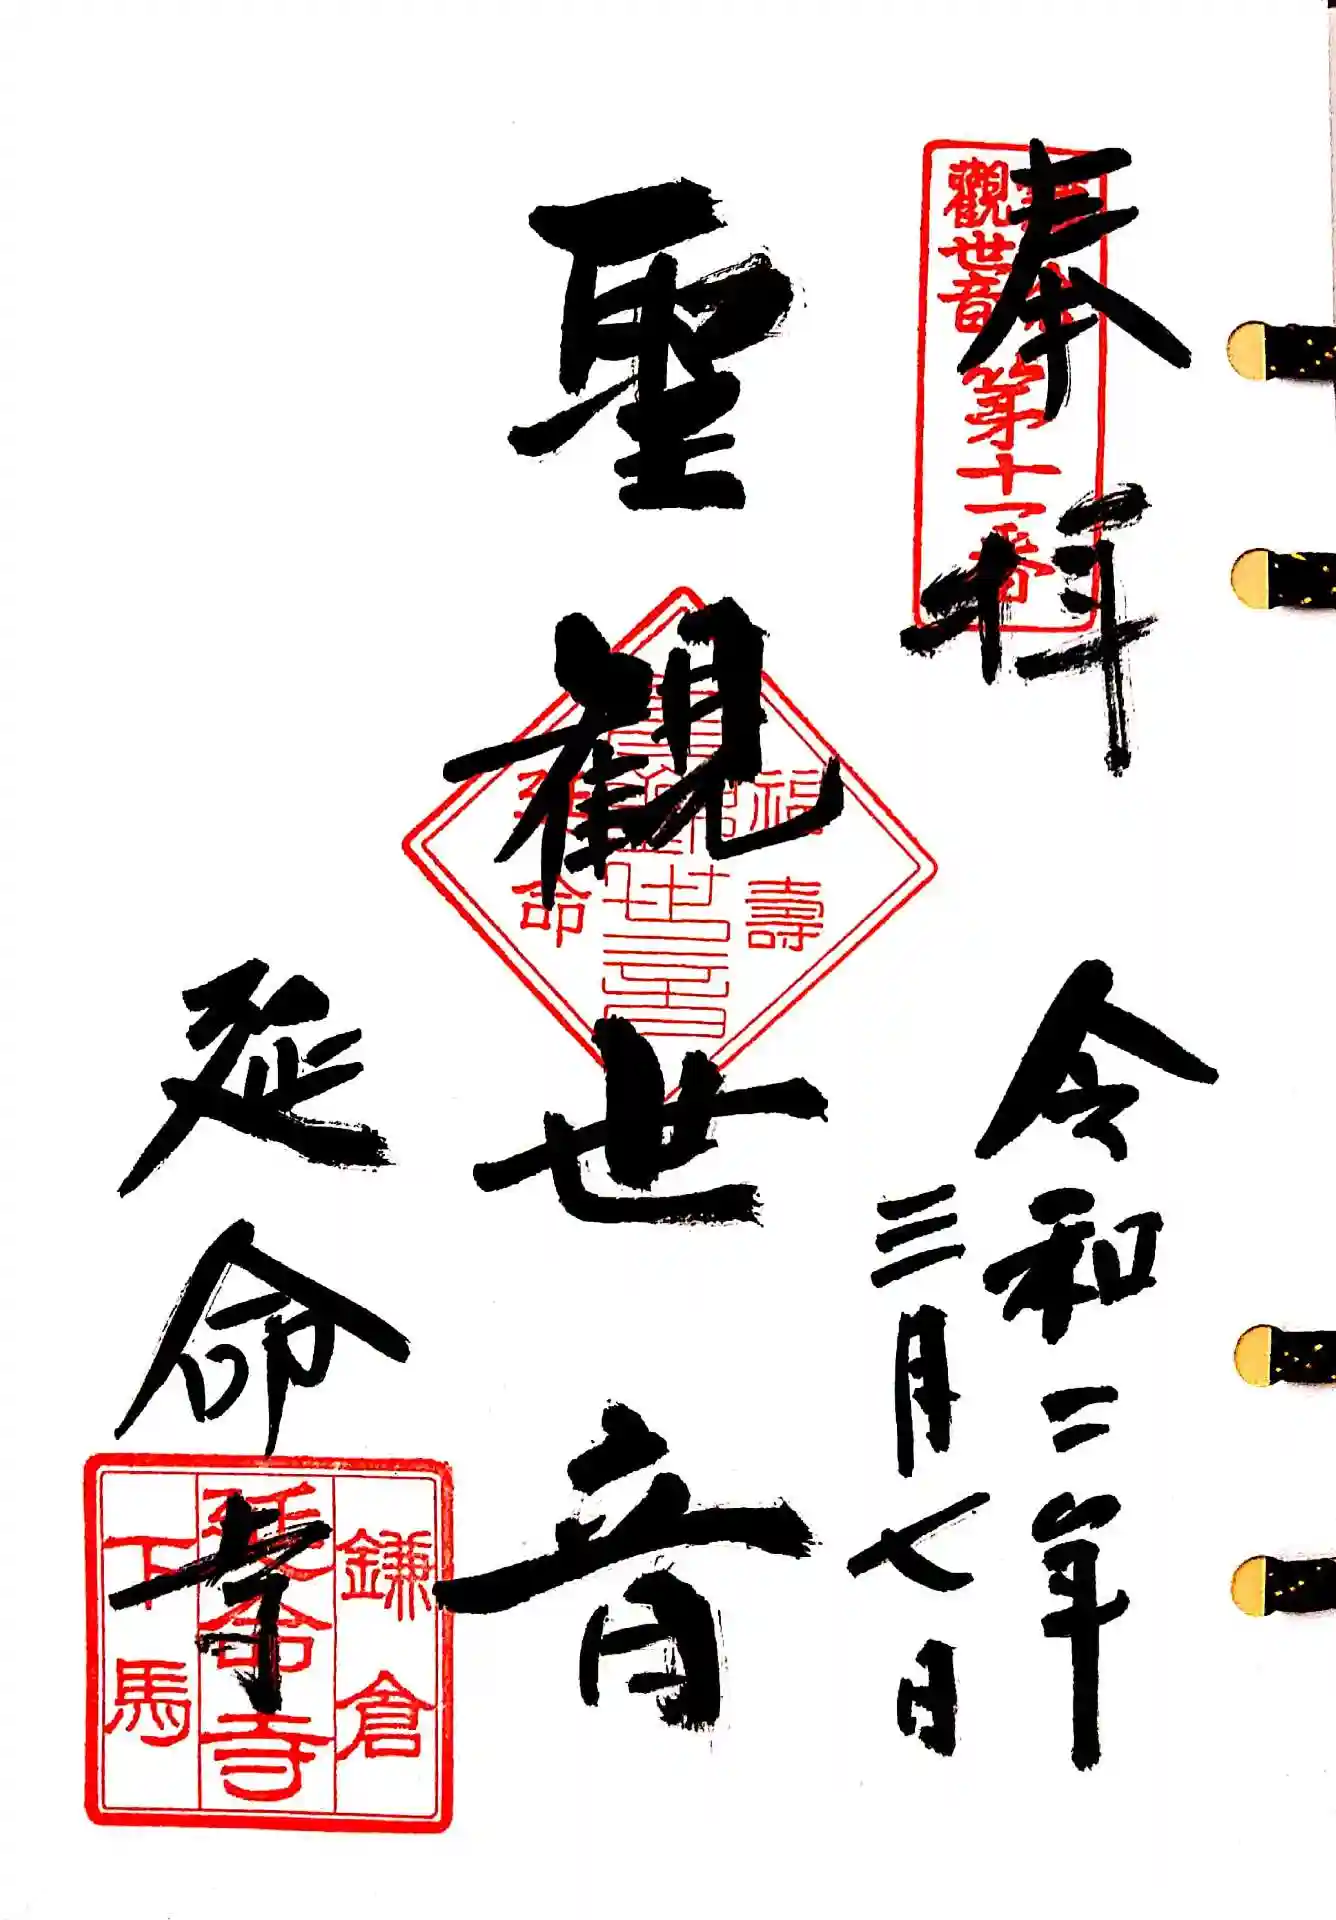 奉拝
觀世音第十一番
令和二年
三月七日
聖観世音
福壽
聖観世音
延命
延命寺
鎌倉
延命寺
下馬